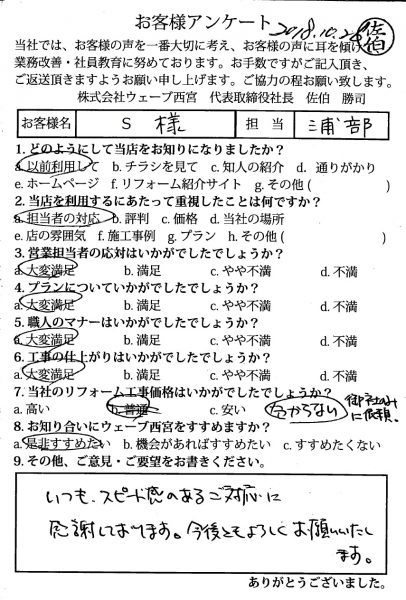 お客様アンケート 2018.10.28 佐伯
当社では、お客様の声を一番大切に考え、お客様の声に耳を傾け
業務改善・社員教育に努めております。お手数ですがご記入頂き、
ご返送頂きますようお願い申し上げます。ご協力の程お願い致します。
株式会社ウェーブ西宮 代表取締役社長 佐伯 勝司
お客様名 S 様 担当 浦部
1. どのようにして当店をお知りになりましたか?
a. 以前利用して b. チラシを見て c. 知人の紹介 d. 通りがかり
e. ホームページ f. リフォーム紹介サイト g. その他 ( )
2. 当店を利用するにあたって重視したことは何ですか?
a. 担当者の対応 b. 評判 c. 価格 d. 当社の場所
e. 店の雰囲気 f. 施工事例 g. プラン h. その他 ( )
3. 営業担当者の応対はいかがでしたでしょうか?
a. 大変満足 b. 満足 c. やや不満 d. 不満
4. プランについていかがでしたでしょうか?
a. 大変満足 b. 満足 c. やや不満 d. 不満
5. 職人のマナーはいかがでしたでしょうか?
a. 大変満足 b. 満足 c. やや不満 d. 不満
6. 工事の仕上がりはいかがでしたでしょうか?
a. 大変満足 b. 満足 c. やや不満 d. 不満
7. 当社のリフォーム工事価格はいかがでしたでしょうか?
a. 高い b. 普通 c. 安い 分からない 御社のみに依頼。
8. お知り合いにウェーブ西宮をすすめますか?
a. 是非すすめたい b. 機会があればすすめたい c. すすめたくない
9. その他、ご意見・ご要望をお書きください。
いつも、スピード感のあるご対応に
感謝しております。今後ともよろしくお願いいたし
ます。
ありがとうございました。